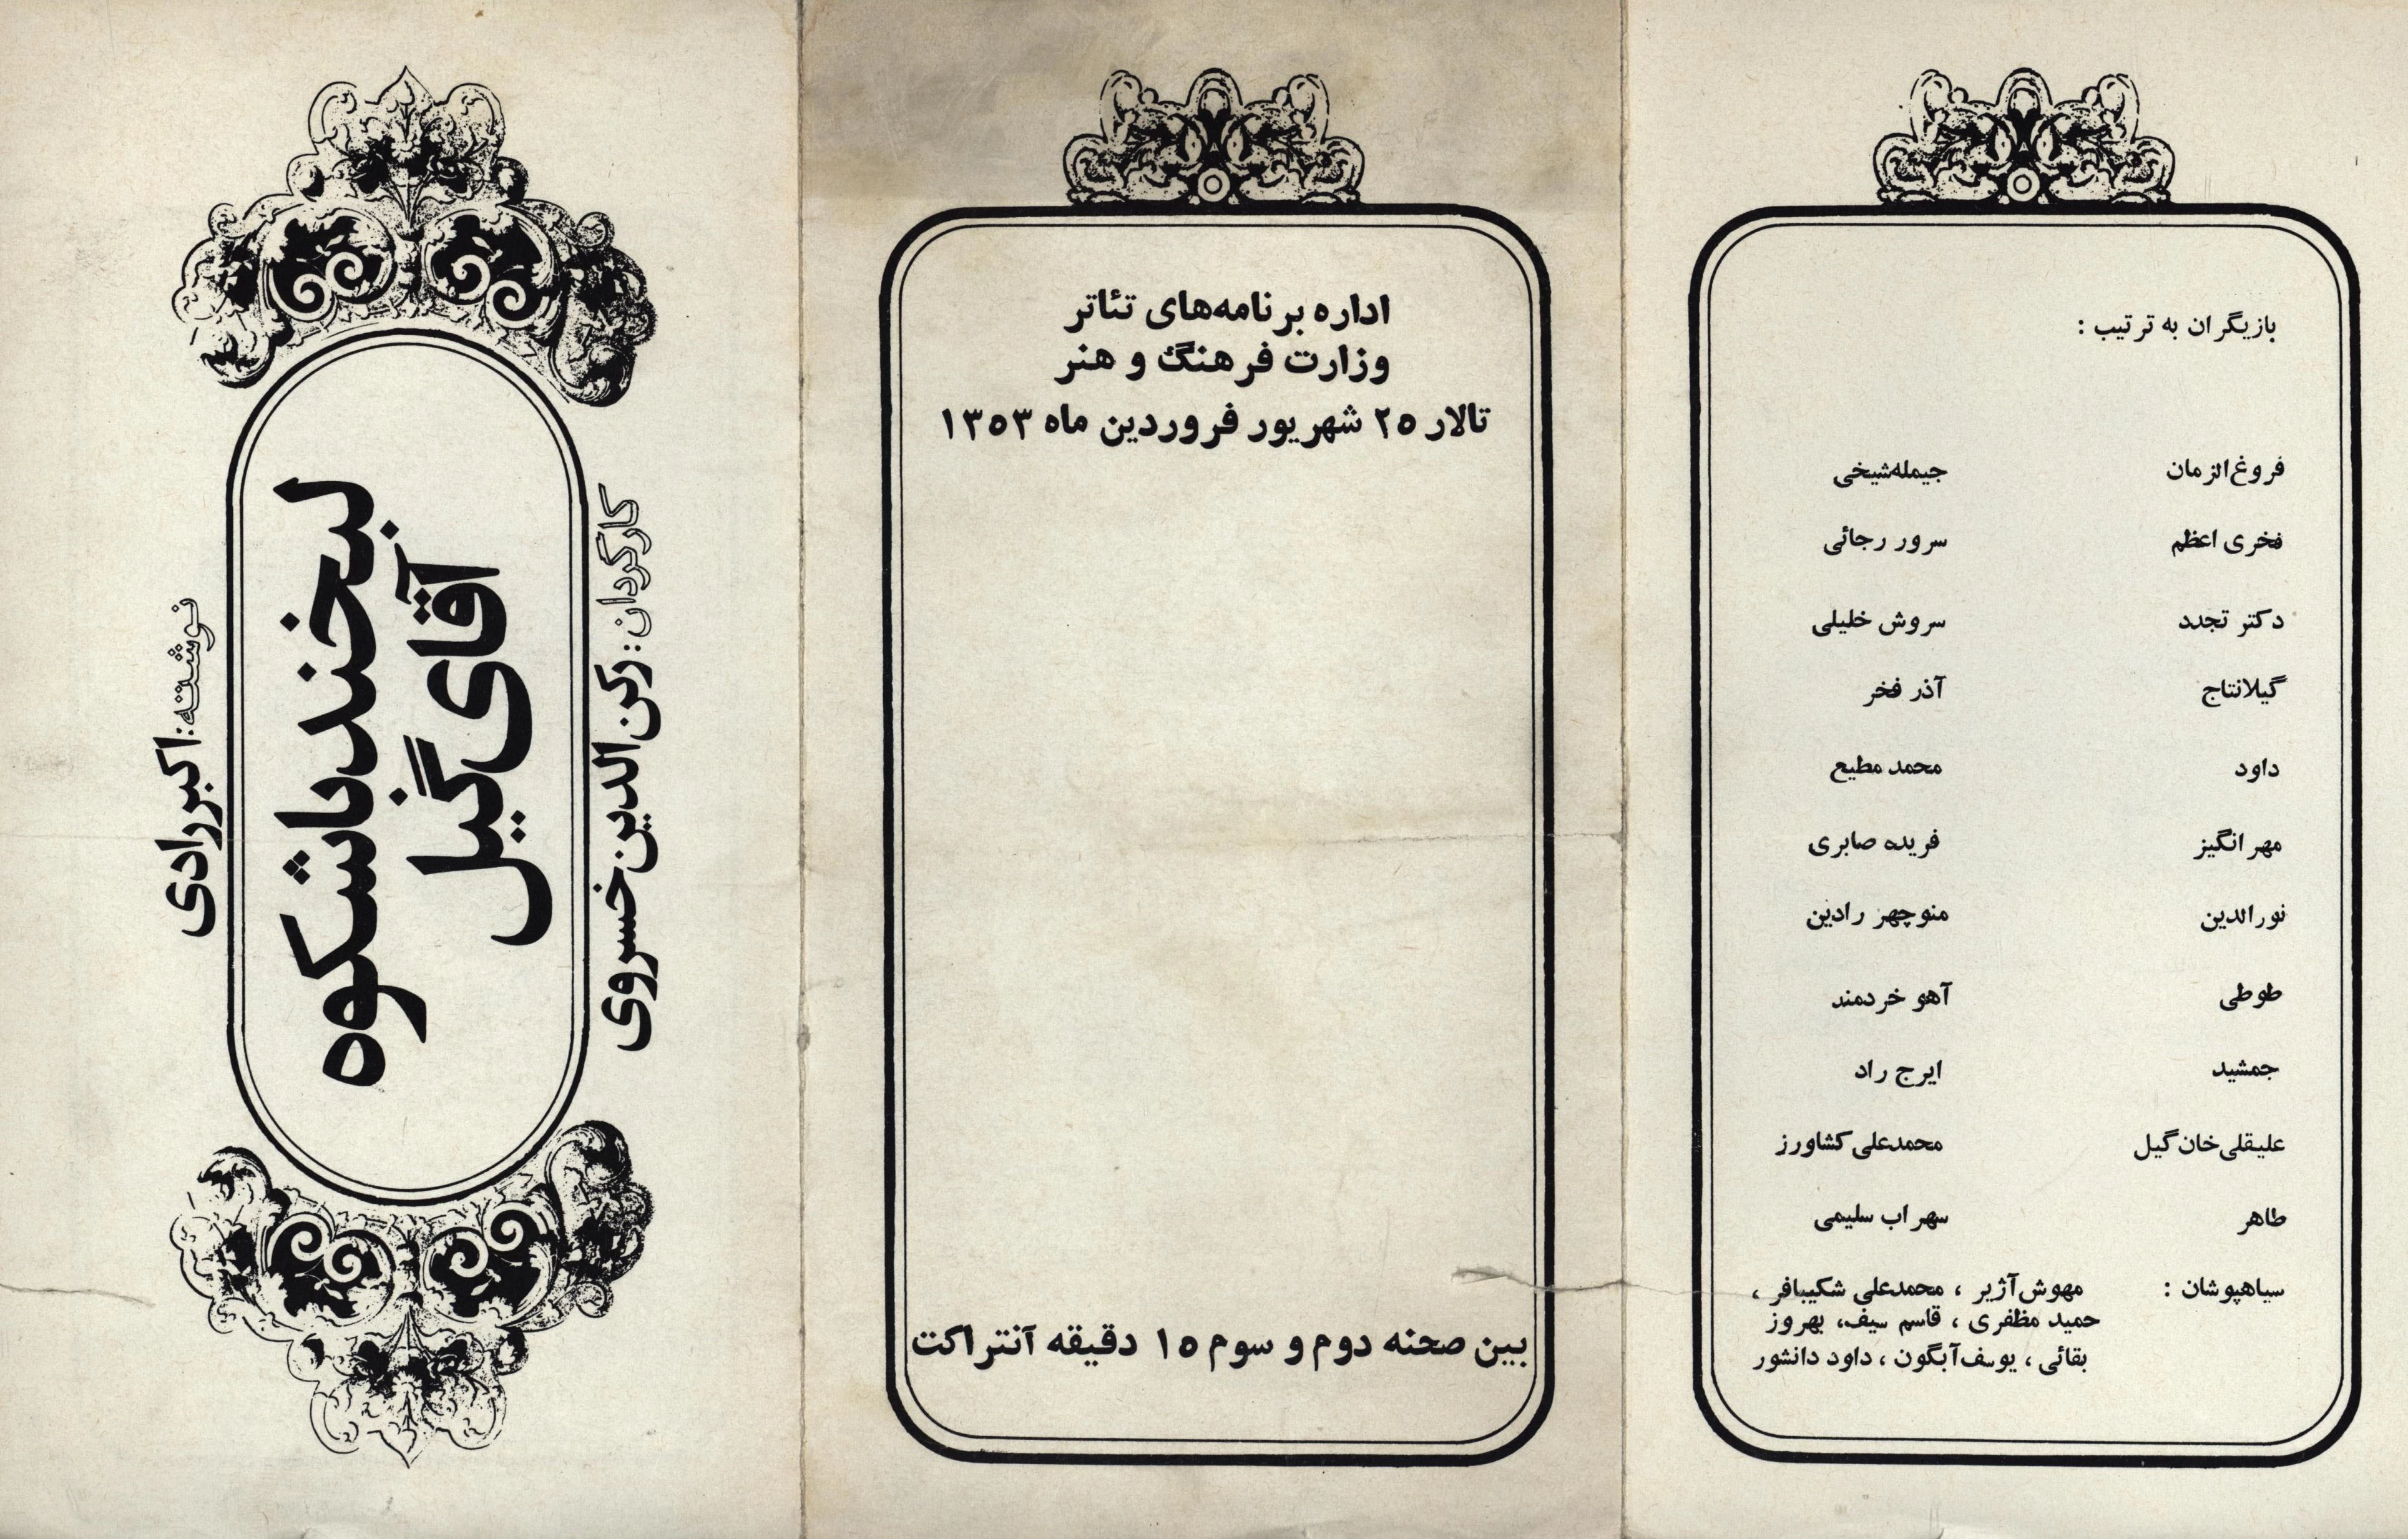 بازیگران به ترتیب :
فروغ‌الزمان جیمله‌شیخی
فخری اعظم سرور رجائی
دکتر تجدد سروش خلیلی
گیلانتاج آذر فخر
داود محمد مطیع
مهرانگیز فریده صابری
نورالدین منوچهر رادین
طوطی آهو خردمند
جمشید ایرج راد
علیقلی‌خان گیل محمدعلی کشاورز
طاهر سهراب سلیمی
سیاهپوشان : مهوش آژیر ، محمدعلی شکیبافر ،
حمید مظفری ، قاسم سیف، بهروز
بقائی ، یوسف آبگون ، داود دانشور
اداره برنامه‌های تئاتر
وزارت فرهنگ و هنر
تالار ۲۵ شهریور فروردین ماه ۱۳۵۳
بین صحنه دوم و سوم ۱۵ دقیقه آنتراکت
کارگردان: رکن‌الدین خسروی
لبخند باشکوه
آقای گیل
نوشته: اکبر رادی